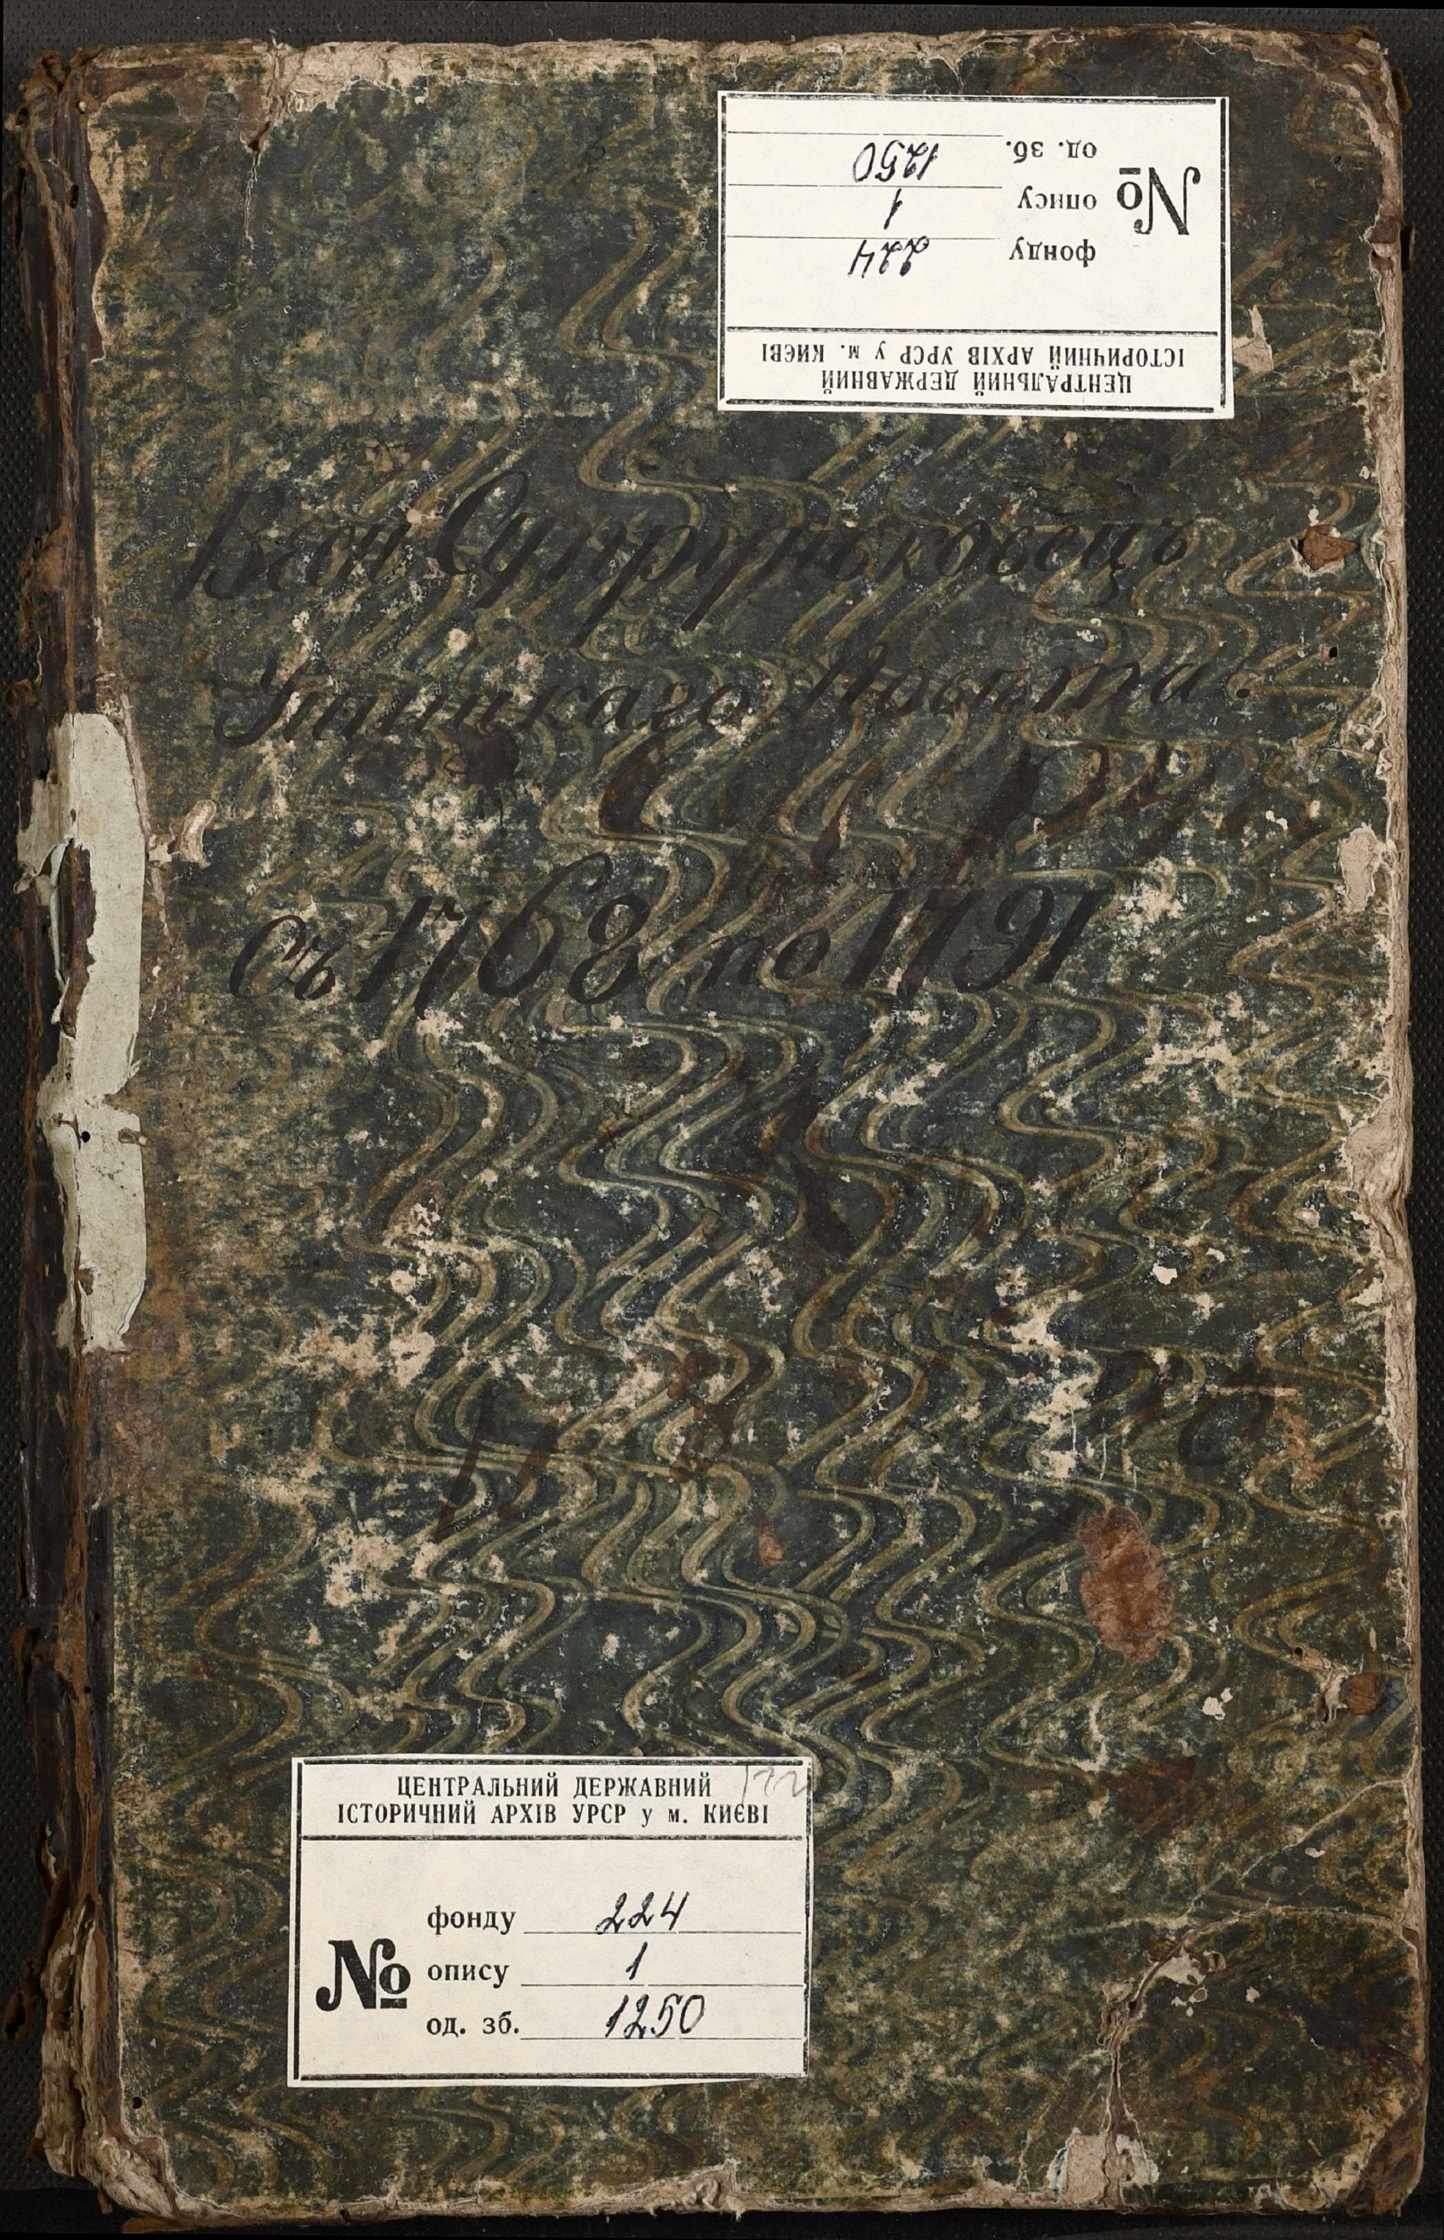 №
фонду 224
опису 1
од. зб. 1250
ЦЕНТРАЛЬНИЙ ДЕРЖАВНИЙ
ІСТОРИЧНИЙ АРХІВ УРСР у м. КИЄВІ
Супруньковецъ
Ушицкаго Повѣта.
Съ 1768 по 1791
ЦЕНТРАЛЬНИЙ ДЕРЖАВНИЙ
ІСТОРИЧНИЙ АРХІВ УРСР у м. КИЄВІ
№
фонду 224
опису 1
од. зб. 1250